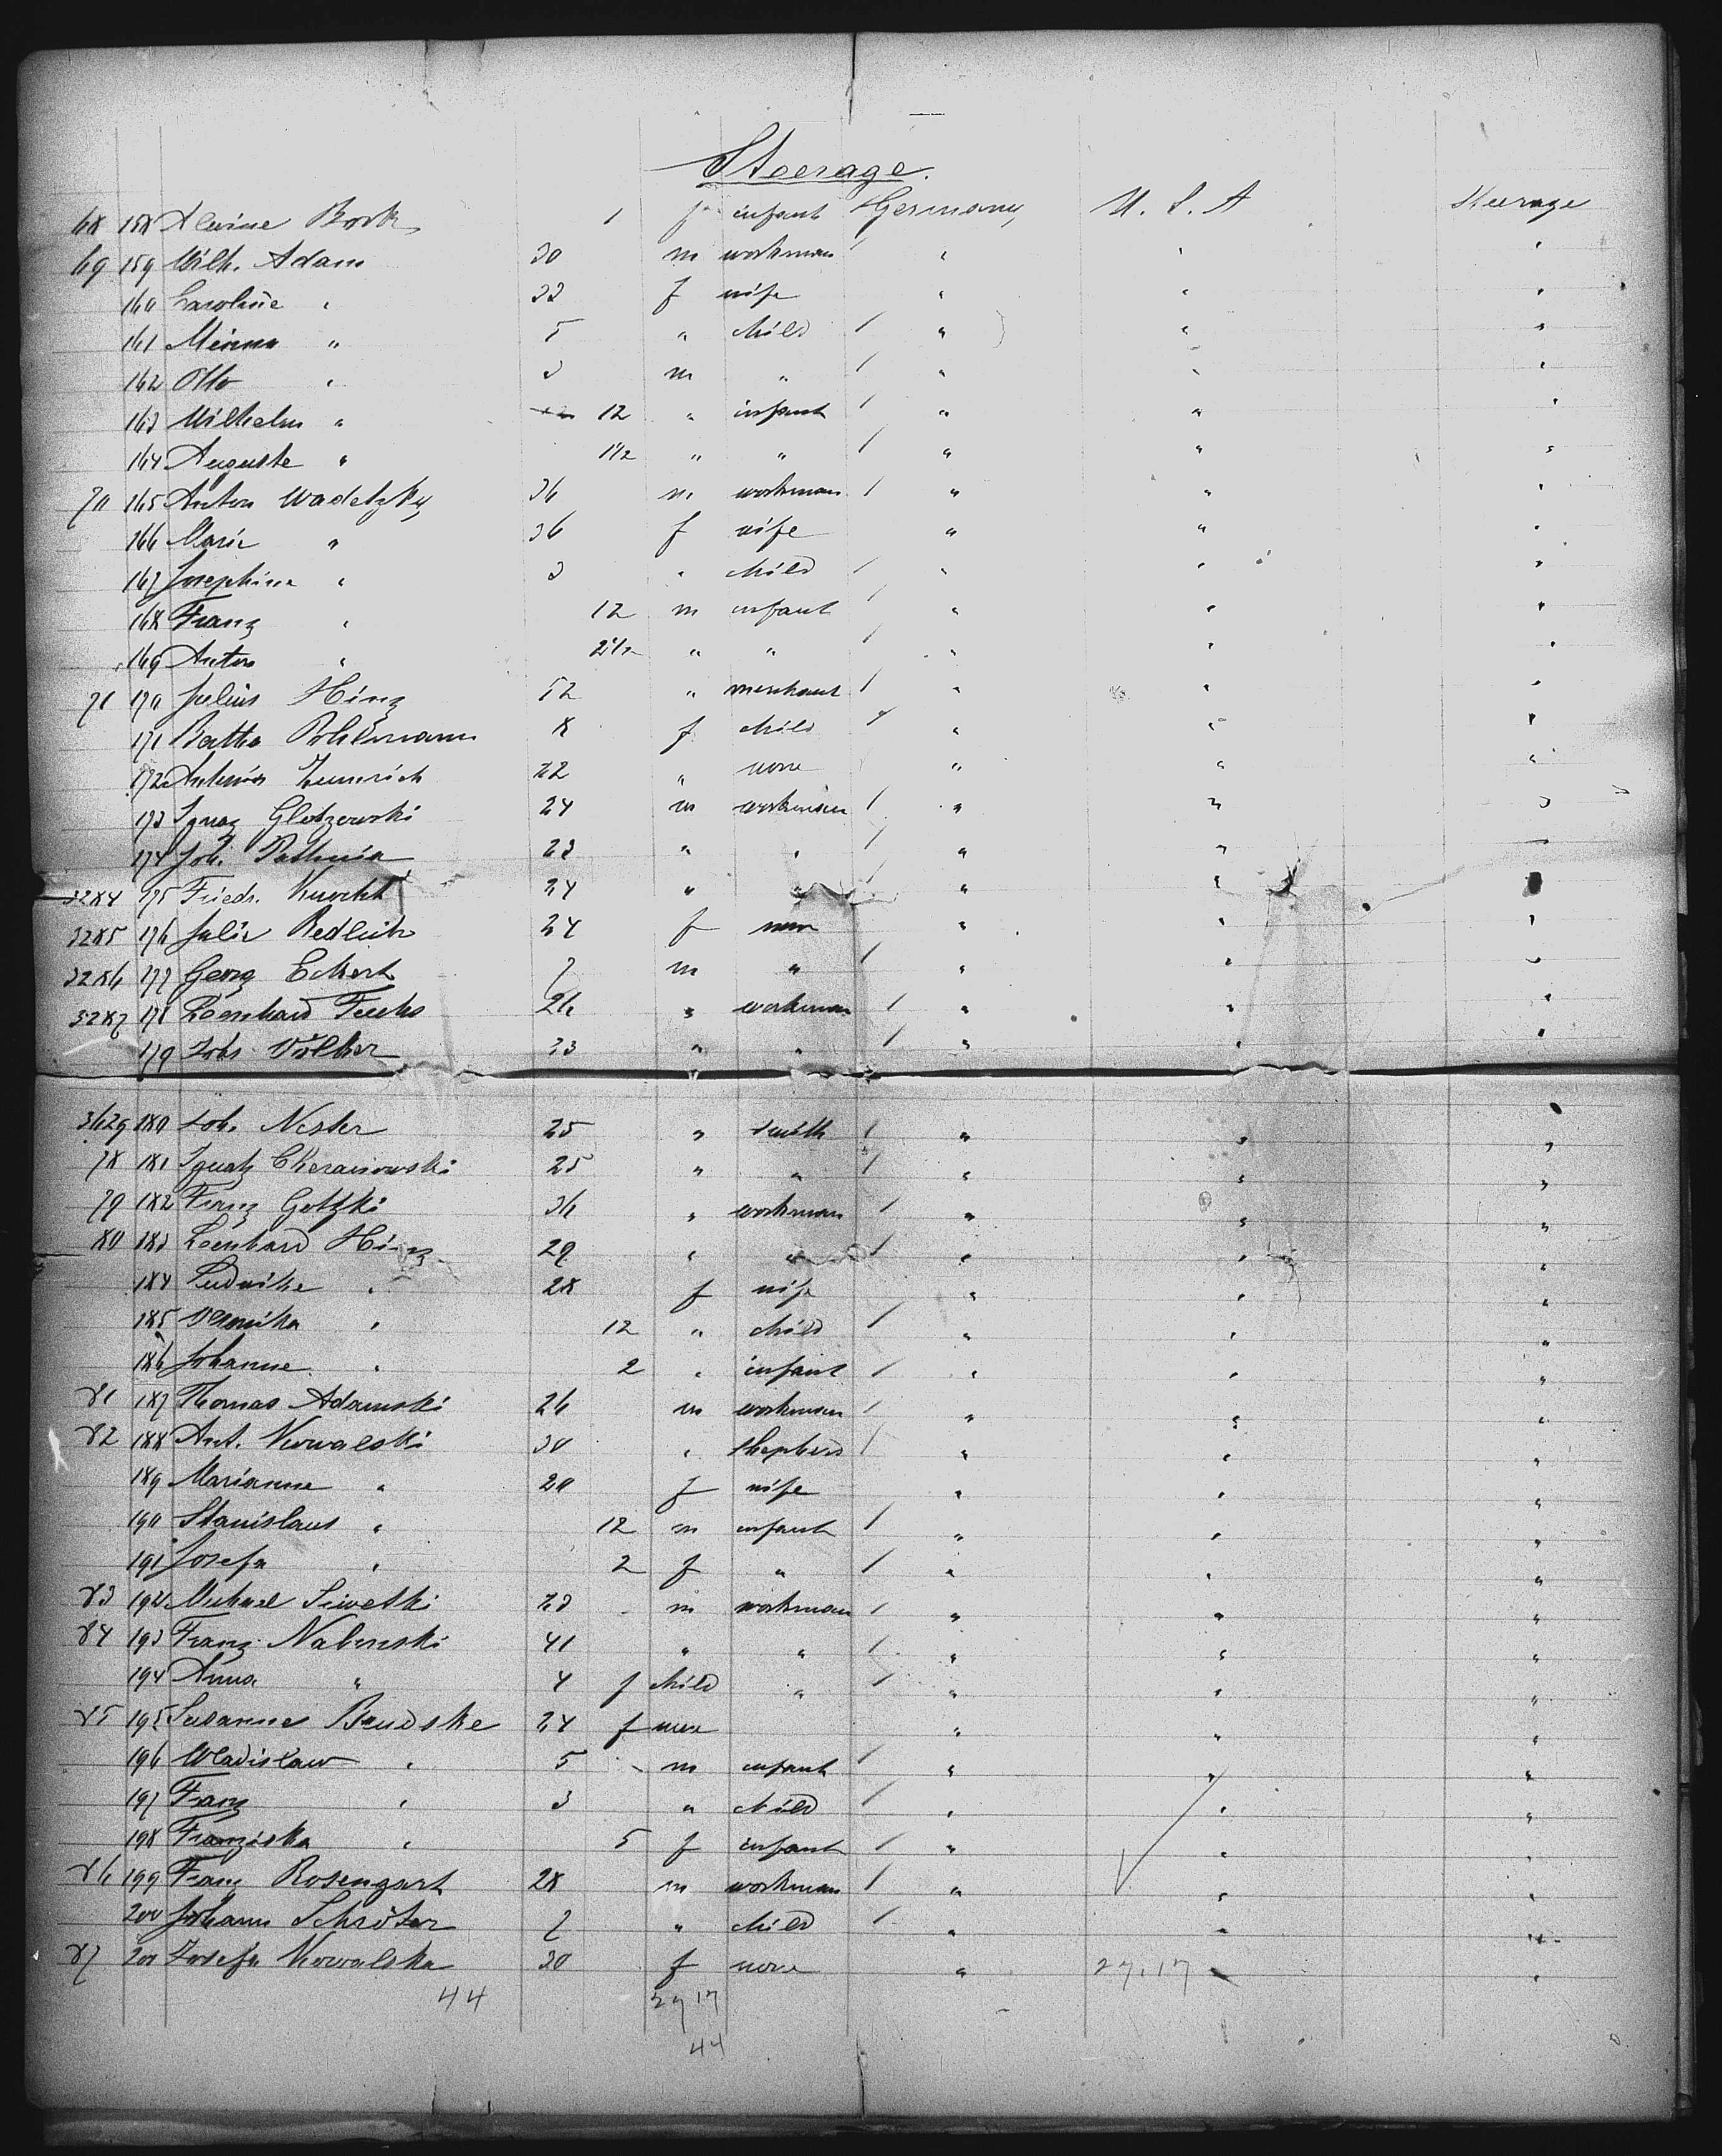 Steerage.
68 158 Alwine Bork 1 f infant Germany U. S. A Steerage
69 159 Wilh. Adam 30 m workman " " "
160 Caroline " 33 f wife " " "
161 Minna " 5 " child / " " "
162 Otto " 3 m " / " " "
163 Wilhelm " 12 " infant / " " "
164 Auguste " 1 1/2 " " / " " "
70 165 Anton Wadetzky 36 m workman / " " "
166 Marie " 36 f wife " " "
167 Josephine " 3 " child / " " "
168 Franz " 12 m infant / " " "
169 Anton " 2 1/2 " " / " " "
71 170 Julius Hinz 52 " merchant / " " "
171 Bertha 8 f child / " " "
172 22 " none " " "
173 Ignaz Glotzewski 24 m workman / " " "
174 Joh. 23 " " / " " "
3284 175 Friedr. Knecht 24 " " / " " "
3285 176 Julie Redlich 24 f none " " "
3286 177 Georg Eckert 7 m " / " " "
3287 178 Leonhard Fuchs 26 " workman / " " "
179 Johs. Völker 23 " " / " " "
3629 180 Joh. Nester 25 " smith / " " "
78 181 Ignatz 25 " " / " " "
79 182 Franz Gotzki 36 " workman / " " "
80 183 Leonhard Hinz 29 " " / " " "
184 Ludwika " 28 f wife " " "
185 " 12 " child / " " "
186 Johanne " 2 " infant / " " "
81 187 Thomas Adamski 26 m workman / " " "
82 188 Ant. Kowalski 30 " shepherd / " " "
189 Marianne " 20 f wife " " "
190 Stanislaus " 12 m infant / " " "
191 Josefa " 2 f " / " " "
83 192 Michael 23 m workman / " " "
84 193 Franz 41 " " / " " "
194 Anna " 4 f child " / " " "
85 195 Susanne Brudske 24 f none " " "
196 Wladislaw " 5 m infant / " " "
197 Franz " 3 " child / " " "
198 Franziska " 5 f infant / " " "
86 199 Franz Rosengart 28 m workman / " " "
200 Johann Schröter 7 " child / " " "
87 201 Josefa Kowalska 30 f none " 27.17 " "
44 27 17
44